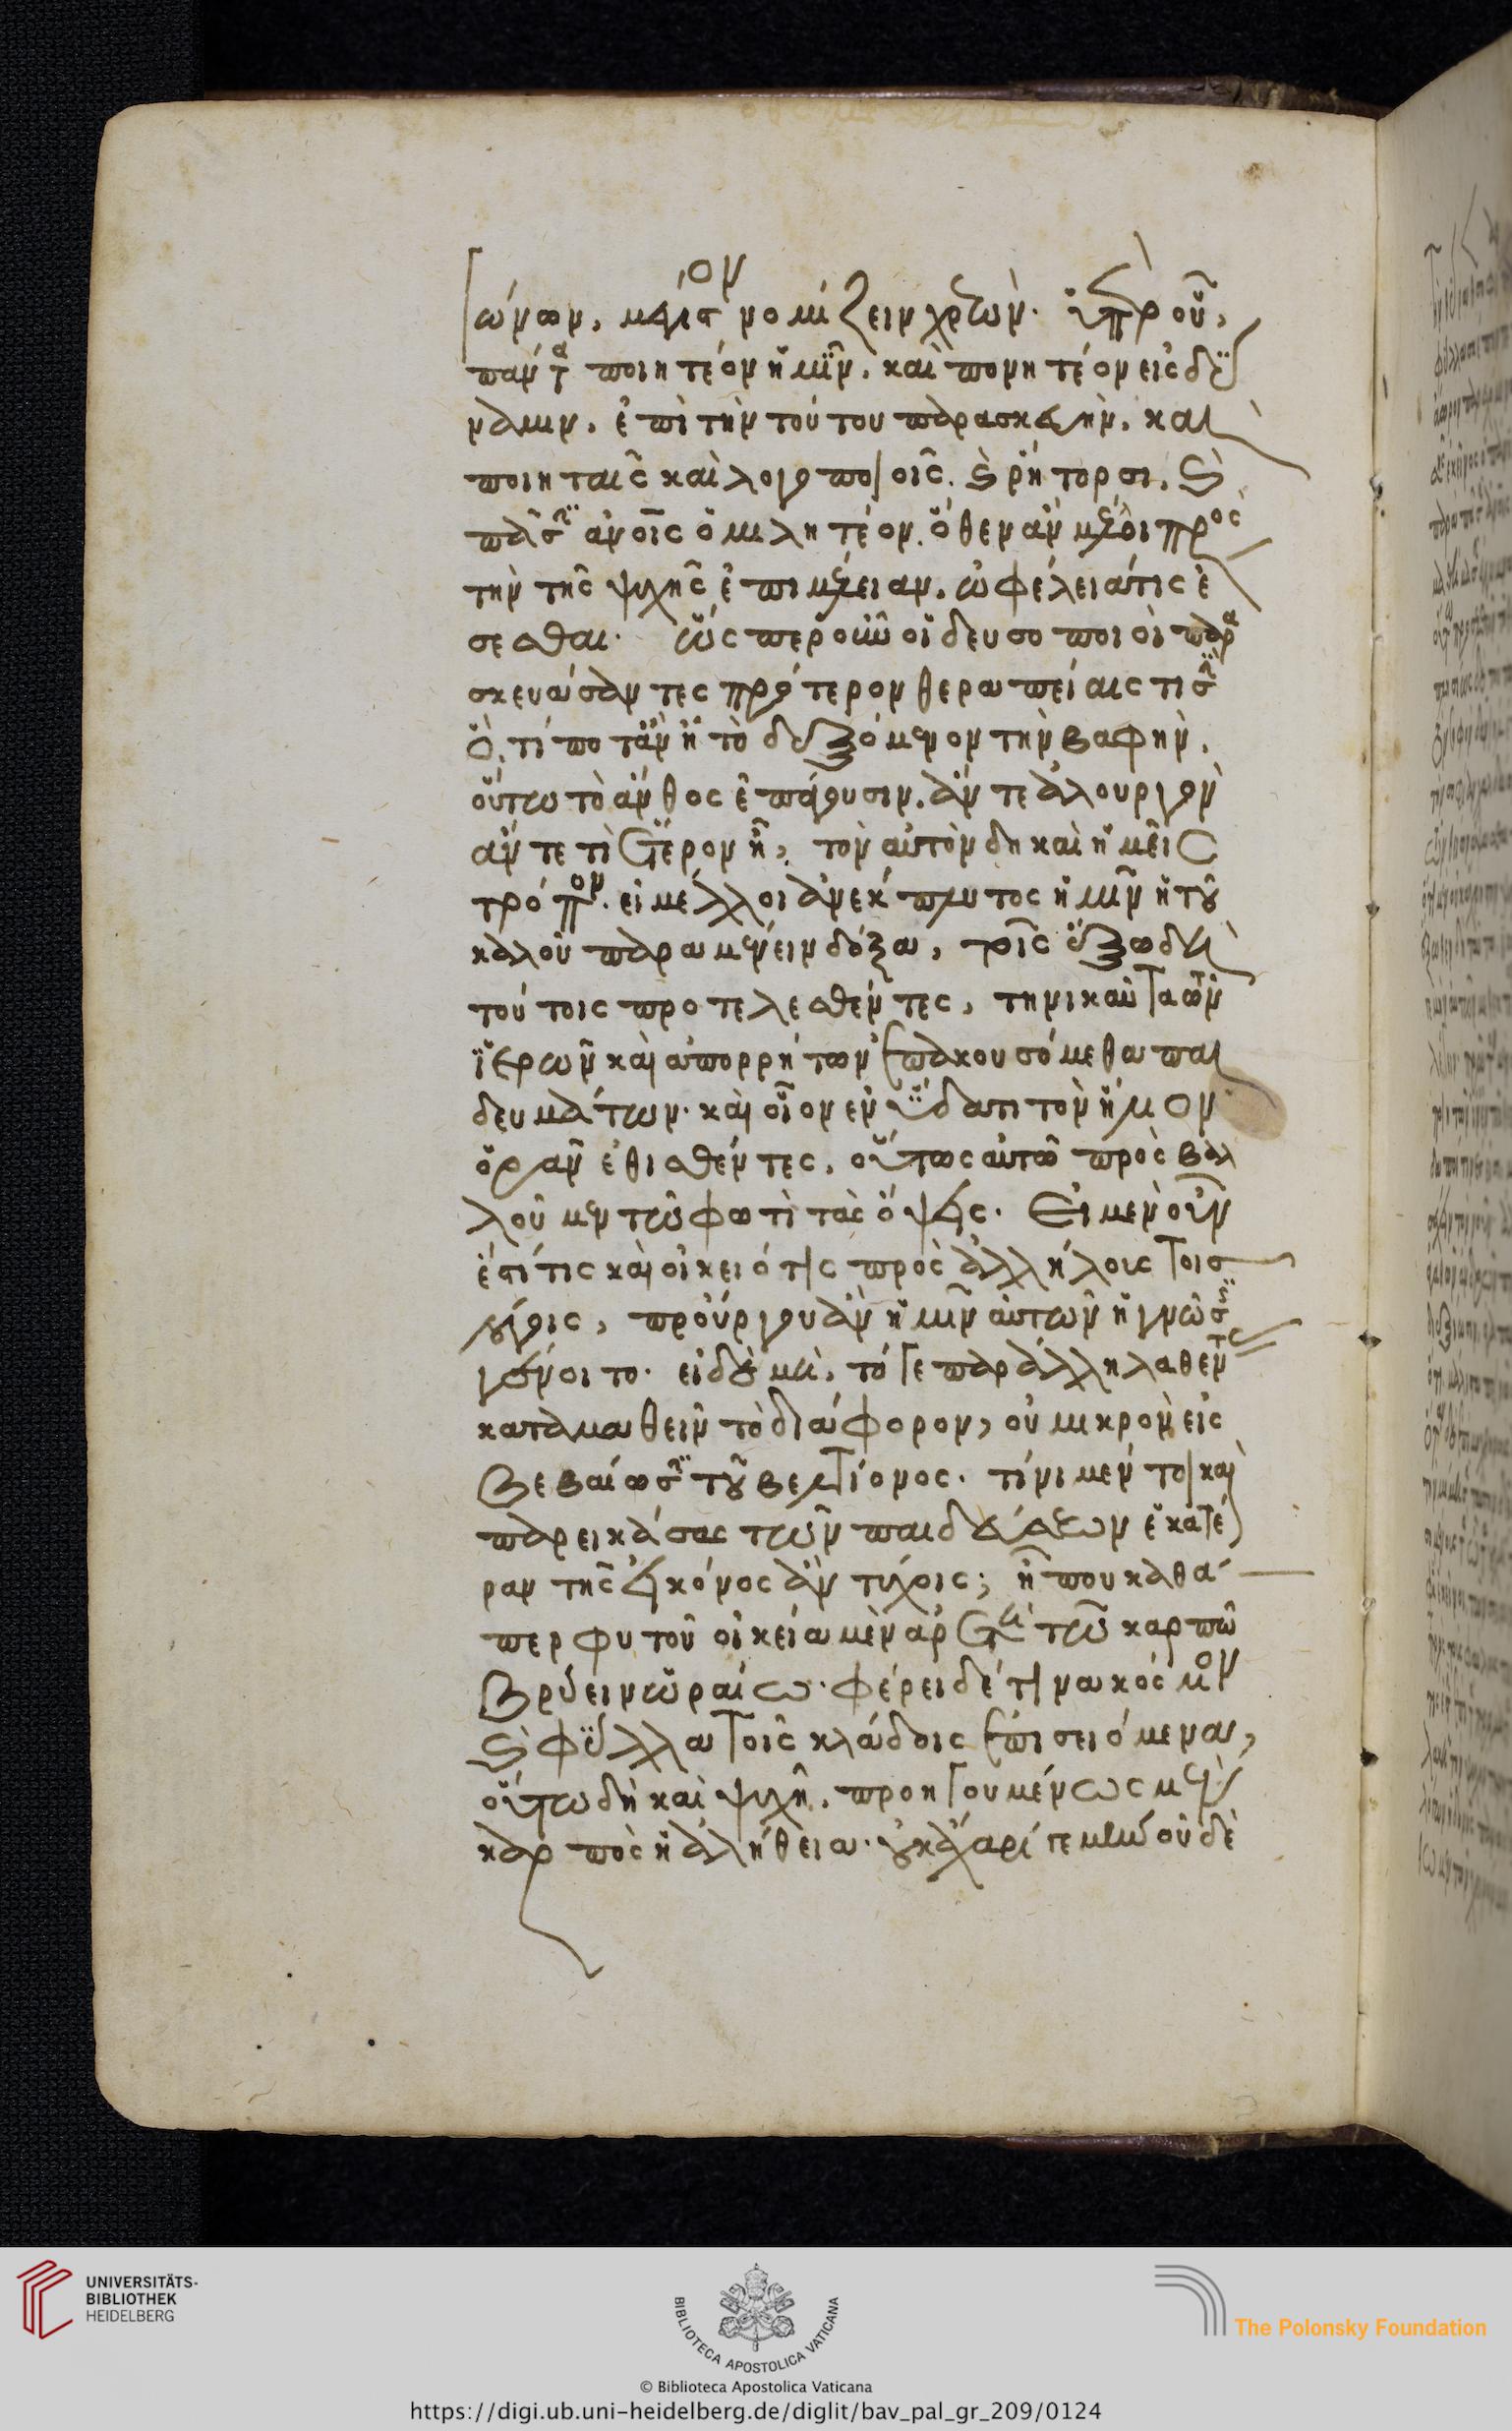 ώνων, μέγιστον νομίζειν χρεών. ὑπὲρ οὗ,
πάντα ποιητέον ἡμῖν. καὶ πονητέον εἰς δύ
ναμιν. ἐπὶ τὴν τούτου παρασκευήν. καὶ
ποιηταῖς καὶ λογοποιοῖς. καὶ ῥήτορσι. καὶ
πᾶσιν ἀνοῖς ὁμιλητέον. ὅθεν ἂν μέλλοι πρὸς
τὴν τῆς ψυχῆς ἐπιμέλειαν. ὠφέλειά τις ἔ
σεσθαι. ὥσπερ οὖν οἱ δευσοποιοὶ παρα
σκευάσαντες πρότερον θεραπείαις τισὶν
ὅ, τί ποτ' ἂν ᾖ τὸ δεξόμενον τὴν βαφὴν.
οὕτω τὸ ἄνθος ἐπάγουσιν. ἄν τε ἁλουργὸν
ἄν τε τὶ ἕτερον ᾖ, τὸν αὐτὸν δὴ καὶ ἡμεῖς
τρόπον. εἰ μέλλοι ἀνέκπλυτος ἡμῖν ἡ τοῦ
καλοῦ παραμένειν δόξα, τοῖς ἔξω δὴ
τούτοις προτελεσθέντες, τηνικαῦτα τῶν
ἱερῶν καὶ ἀπορρήτων ἐπακουσόμεθα παι
δευμάτων. καὶ οἷον ἐν ὕδατι τὸν ἥλιον
ὁρᾶν ἐθισθέντες, οὕτως αὐτῶ προσβαλ
λοῦμεν τῶ φωτὶ τὰς ὄψεις. Εἰ μὲν οὖν
ἔστί τις καὶ οἰκειότης πρὸς ἀλλήλους τοῖς
λόγοις, προὔργου ἂν ἡμῖν αὐτῶν ἡ γνῶσις
γένοιτο. εἰ δὲ μὴ, τό γε παράλληλα θέντας
καταμαθεῖν τὸ διάφορον, οὐ μικρὸν εἰς
βεβαίωσιν τοῦ βελτίονος. τίνι μέν τοι καὶ
παρεικάσας τῶν παιδεύσεων ἑκατέ
ραν τῆς εἰκόνος ἂν τύχοις; ἦ που καθά
περ φυτοῦ οἰκεία μὲν ἀρετὴ τῶ καρπῶ
βρύειν ὡραίω. φέρει δέ τινα κόσμον
καὶ φύλλα τοῖς κλάδοις ἐπισειόμενα,
οὕτω δὴ καὶ ψυχῆ. προηγουμένως μὲν
καρπὸς ἡ ἀλήθεια. οὐκ ἄχαρί γε μὴν οὐδὲ
UNIVERSITÄTS-
BIBLIOTHEK
HEIDELBERG
BIBLIOTECA APOSTOLICA VATICANA
© Biblioteca Apostolica Vaticana
The Polonsky Foundation
https://digi.ub.uni-heidelberg.de/diglit/bav_pal_gr_209/0124